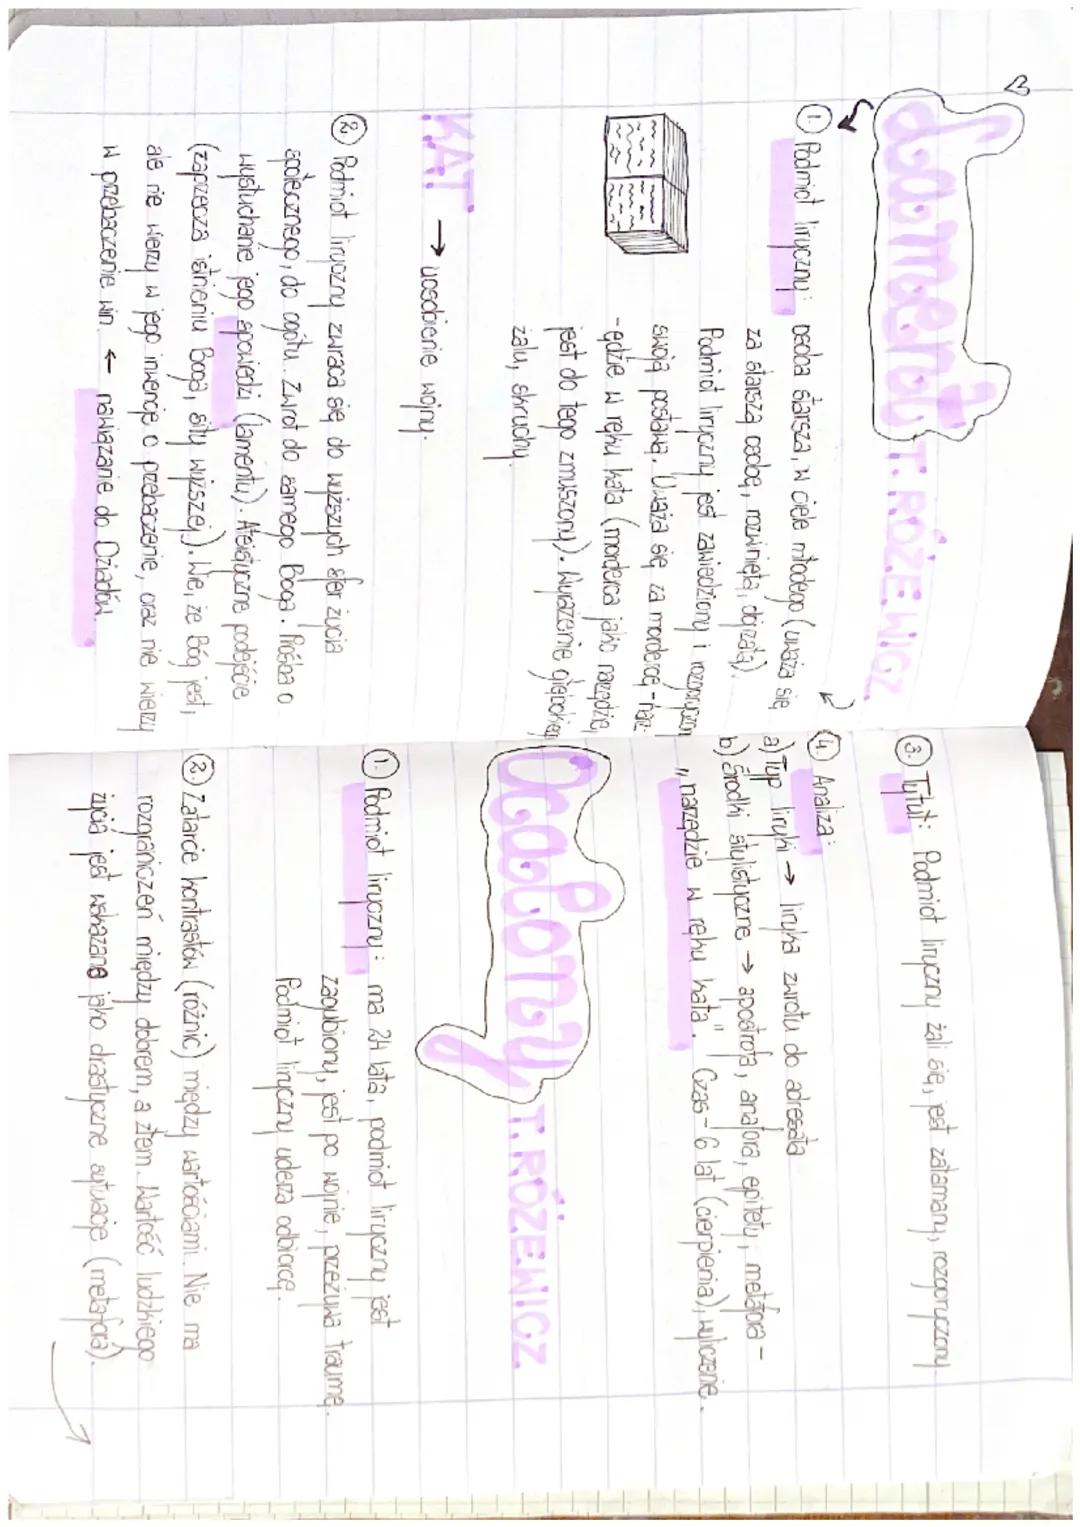 Lament T. RÓŻEWICZ
1. Podmiot liryczny: osoba starsza, w ciele młodego (uważa się
za starszą osobę, rozwiniętą, dojrzałą).
Podmiot liryczny jest zawiedziony i rozgoryczon
swoją postawą. Uważa się za mordercę - narz-
- ędzie w ręku kata (morderca jako narzędzie,
jest do tego zmuszony). Wyrażenie głębokiego
żalu, skruchy.
KAT → uosobienie wojny.
2. Podmiot liryczny zwraca się do wyższych sfer życia
społecznego, do ogółu. Zwrot do samego Boga. Prośba o
wysłuchanie jego spowiedzi (lamentu). Ateistyczne podejście
(zaprzecza istnieniu Boga, siły wyższej). Wie, że Bóg jest,
ale nie wierzy w jego inwencję o przebaczenie, oraz nie wierzy
w przebaczenie win. ← nawiązanie do Dziadów.
3. Tytuł: Podmiot liryczny żali się, jest załamany, rozgoryczony
4. Analiza:
a) Typ liryki → liryka zwrotu do adresata
b) Środki stylistyczne → apostrofa, anafora, epitety, metafora -
"narzędzie w ręku kata". Czas - 6 lat (cierpienia), wyliczenie.
Ocalony T. RÓŻEWICZ.
1. Podmiot liryczny: ma 24 lata, podmiot liryczny jest
zagubiony, jest po wojnie, przeżywa traumę.
Podmiot liryczny uderza odbiorcę.
2. Zatarcie kontrastów (różnic) między wartościami. Nie ma
rozgraniczeń między dobrem, a złem. Wartość ludzkiego
życia jest wskazana jako drastyczne sytuacje (metafora). →